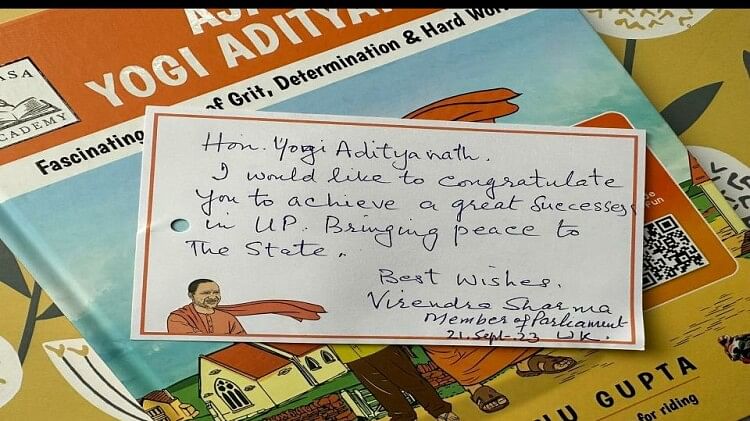 ASA
ACADEMY
YOGI ADITYA
Fascinating
of Grit, Determination & Hard Wor
Hon. Yogi Adityanath.
I would like to congratulate
you to achieve a great Successes
in UP. Bringing peace to
The State.
Best Wishes.
Virendra Sharma
Member of Parliament
21. Sept- 23 UK.
Fun
NU GUPTA
for riding